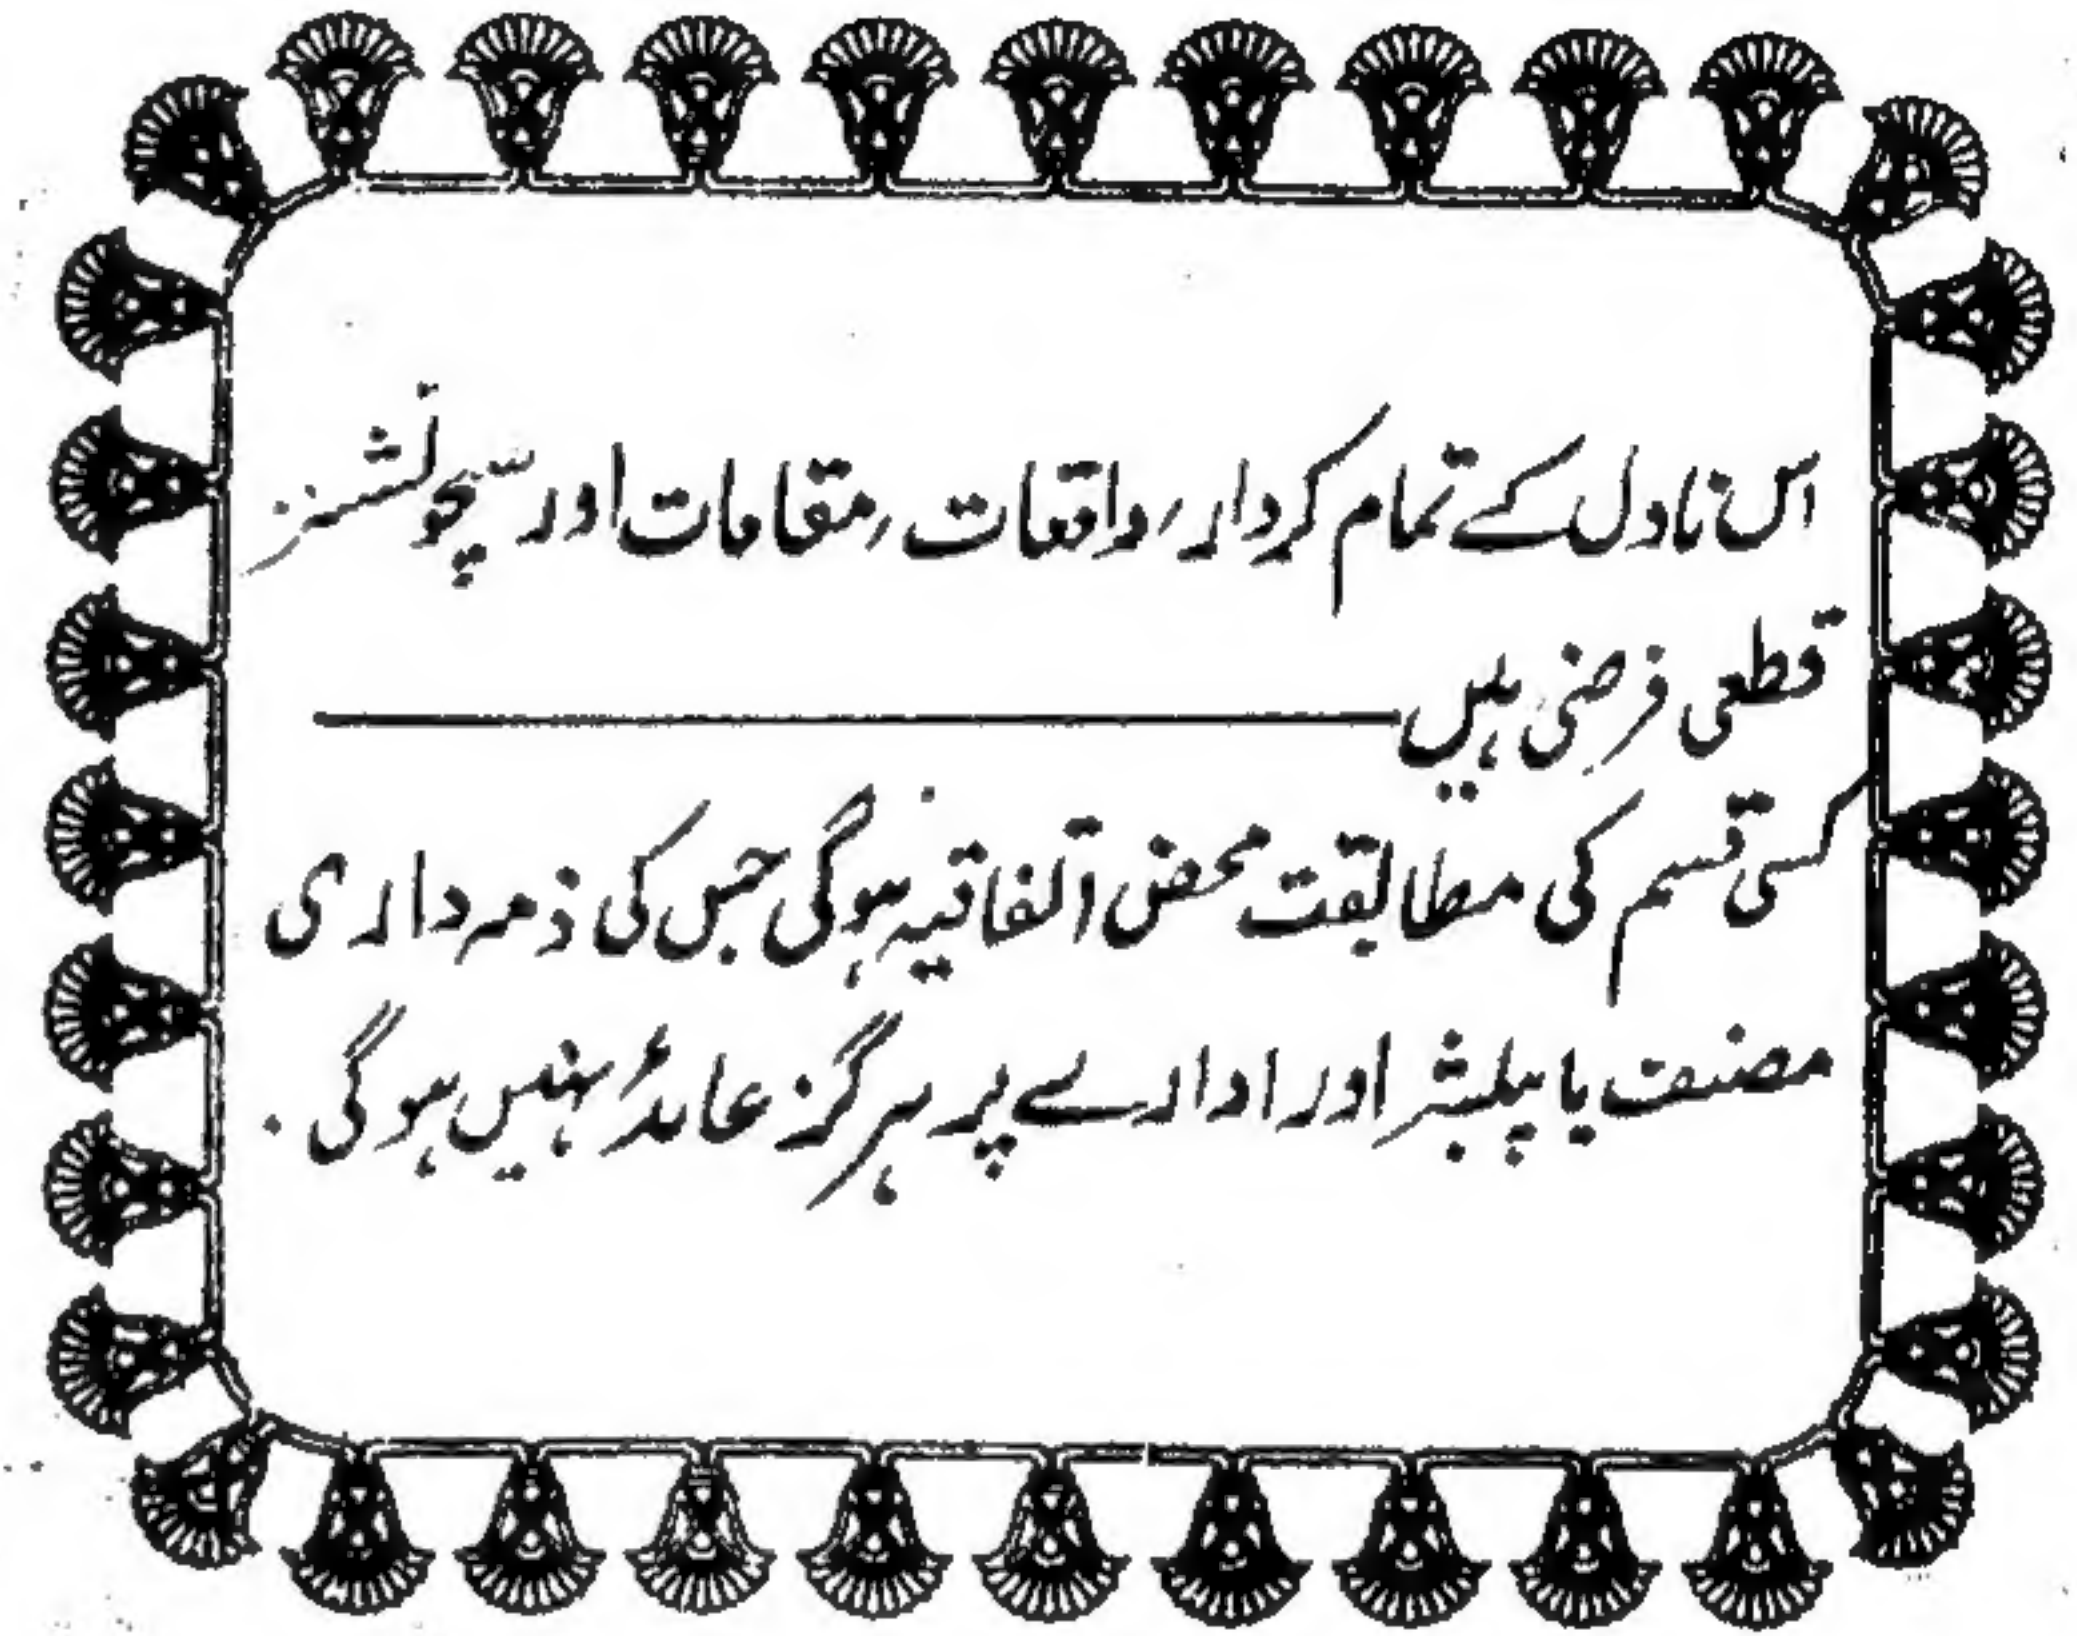 اس ناول کے تمام کردار، واقعات، مقامات اور سچوئشنز
قطعی فرضی ہیں ــــــــــــــــ
کسی قسم کی مطابقت محض اتفاقیہ ہوگی جس کی ذمہ داری
مصنف یا پبلشر اور ادارے پر ہرگز عائد نہیں ہوگی.